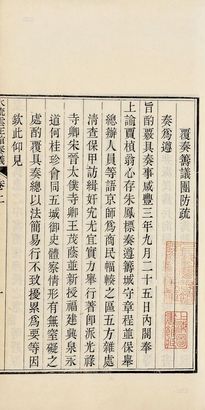 覆奏籌議團防疏
奏為遵
旨酌覈具奏事咸豐三年九月二十五日內閣奉
上諭賈楨翁心存朱鳳標奏遵籌城守章程並保舉
總辦人員等語京師為商民輻輳之區五方雜處
清查保甲訪緝奸宄尤宜實力舉行著即派光祿
寺卿宋晉太僕寺卿王茂蔭並新授福建興泉永
道何桂珍會同五城御史體察情形有無窒礙之
處酌覈具奏總以法簡易行不致擾累為要等因
欽此仰見
水流雲在館奏議 卷